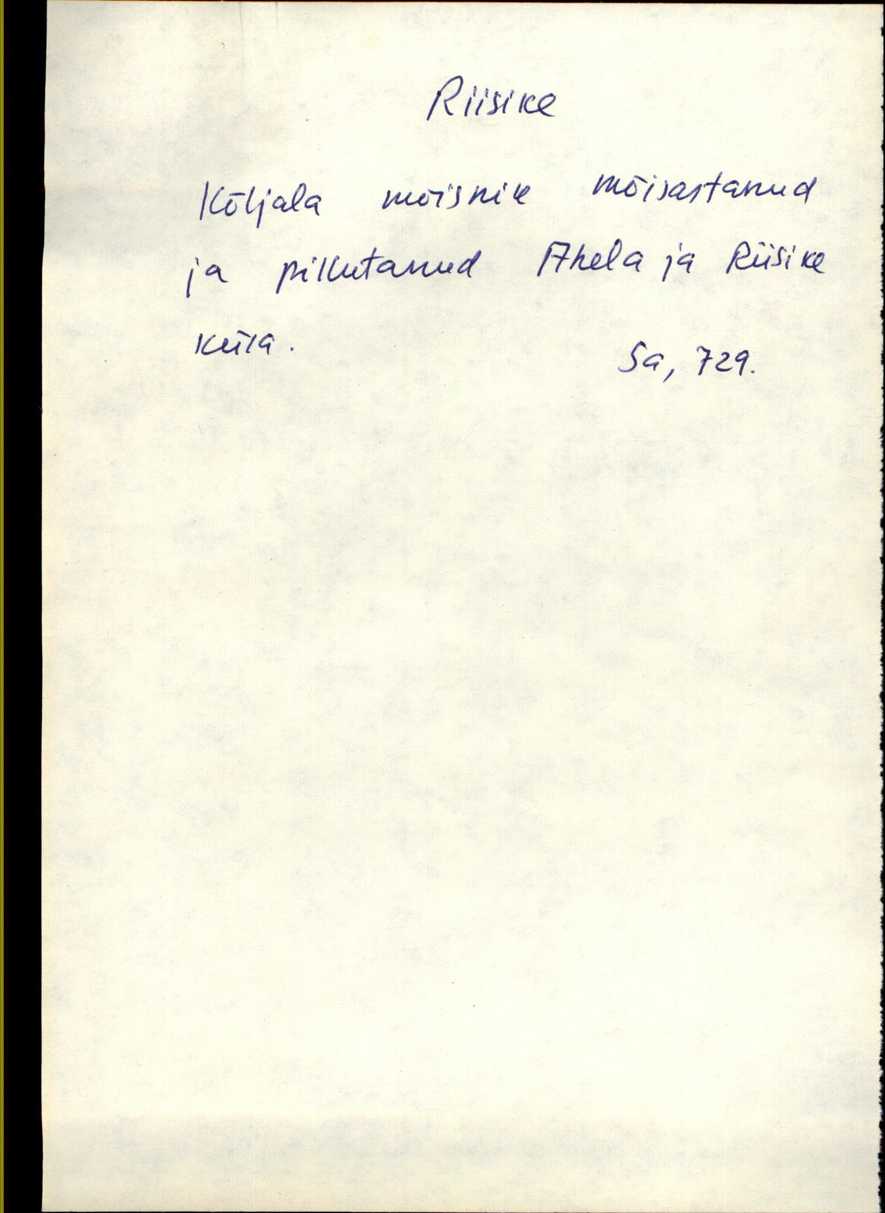 Riisike
Kõljala mõisnik mõisastanud
ja pillutanud Ahela ja Riisike
küla.
Sa, 729.